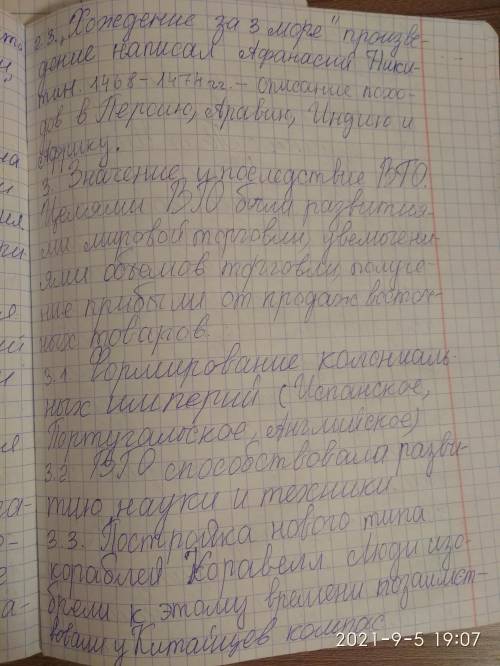 2.3. „Хождение за 3 море" произве-
дение написал Афанасий Ники-
тин. 1468-1474 гг. - описание похо-
дов в Персию, Аравию, Индию и
Африку.
3. Значение и последствие ВГО.
Целями ВГО были развития-
ми мировой торговли, увеличени-
ями объемов торговли, получе-
ние прибыли от продаж восточ-
ных товаров.
3.1. Формирование колониаль-
ных империй (Испанское,
Португальское, Английское)
3.2. ВГО способствовала разви-
тию науки и техники.
3.3. Постройка нового типа
кораблей Каравелл люди изо-
брели к этому времени позаимст-
вовали у Китайцев компас
2021-9-5 19:07